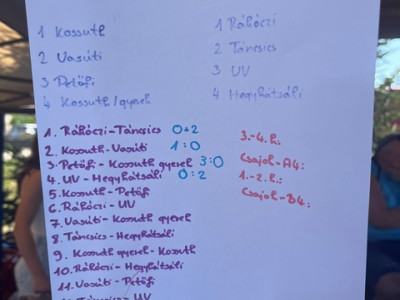 1 Kossuth
2 Vasúti
3 Petőfi
4 Kossuth/gyerek
1 Rákóczi
2 Táncsics
3 UV
4 Hegyhátsáli
1. Rákóczi-Táncsics 0:2
2. Kossuth-Vasúti 1:0
3. Petőfi-Kossuth gyerek 3:0
4. UV-Hegyhátsáli 0:2
5. Kossuth-Petőfi
6. Rákóczi-UV
7. Vasúti-Kossuth gyerek
8. Táncsics-Hegyhátsáli
9. Kossuth gyerek-Kossuth
10. Rákóczi-Hegyhátsáli
11. Vasúti-Petőfi
Táncsics-UV
3.-4. h:
Csajol-A4:
1.-2. h:
Csajol-B4: